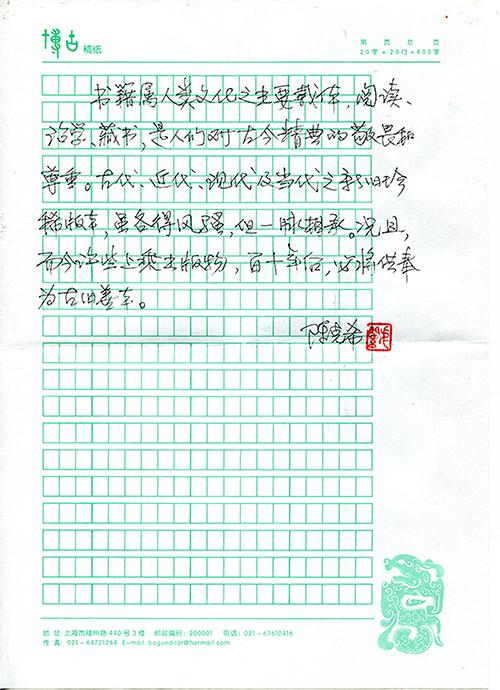 博古 稿纸
第 页 总 页
20字×20行=400字
书籍属人类文化之主要载体，阅读、
治学、藏书，是人们对古今精典的敬畏和
尊重。古代、近代、现代及当代之新旧珍
稀版本，虽各得风骚，但一脉相承。况且，
而今这些上乘出版物，百十年后，必将供奉
为古旧善本。
陈克希
地 址:上海市福州路 440 号 3 楼 邮政编码: 200001 电话: 021-63610416
传 真: 021-64721254 E-mail: bogueditor@hotmail.com